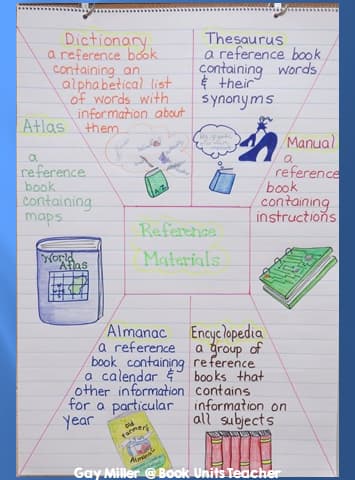 Dictionary
a reference book
containing an
alphabetical list
of words with
information about
them
A-Z
Thesaurus
a reference book
containing words
& their
synonyms
Atlas
a
reference
book
containing
maps
World
Atlas
Manual
a
reference
book
containing
instructions
Reference
Materials
Almanac
a reference
book containing
a calendar &
other information
for a particular
year
Old
Farmer's
Almanac
Encyclopedia
a group of
reference
books that
contains
information on
all subjects
Gay Miller @ Book Units Teacher